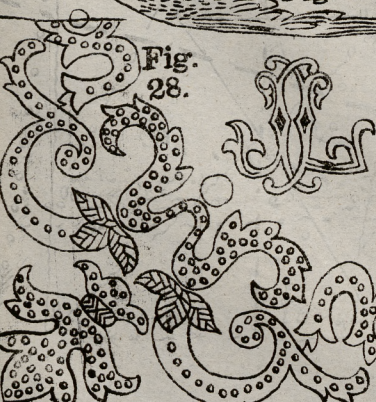 Fig.
28.